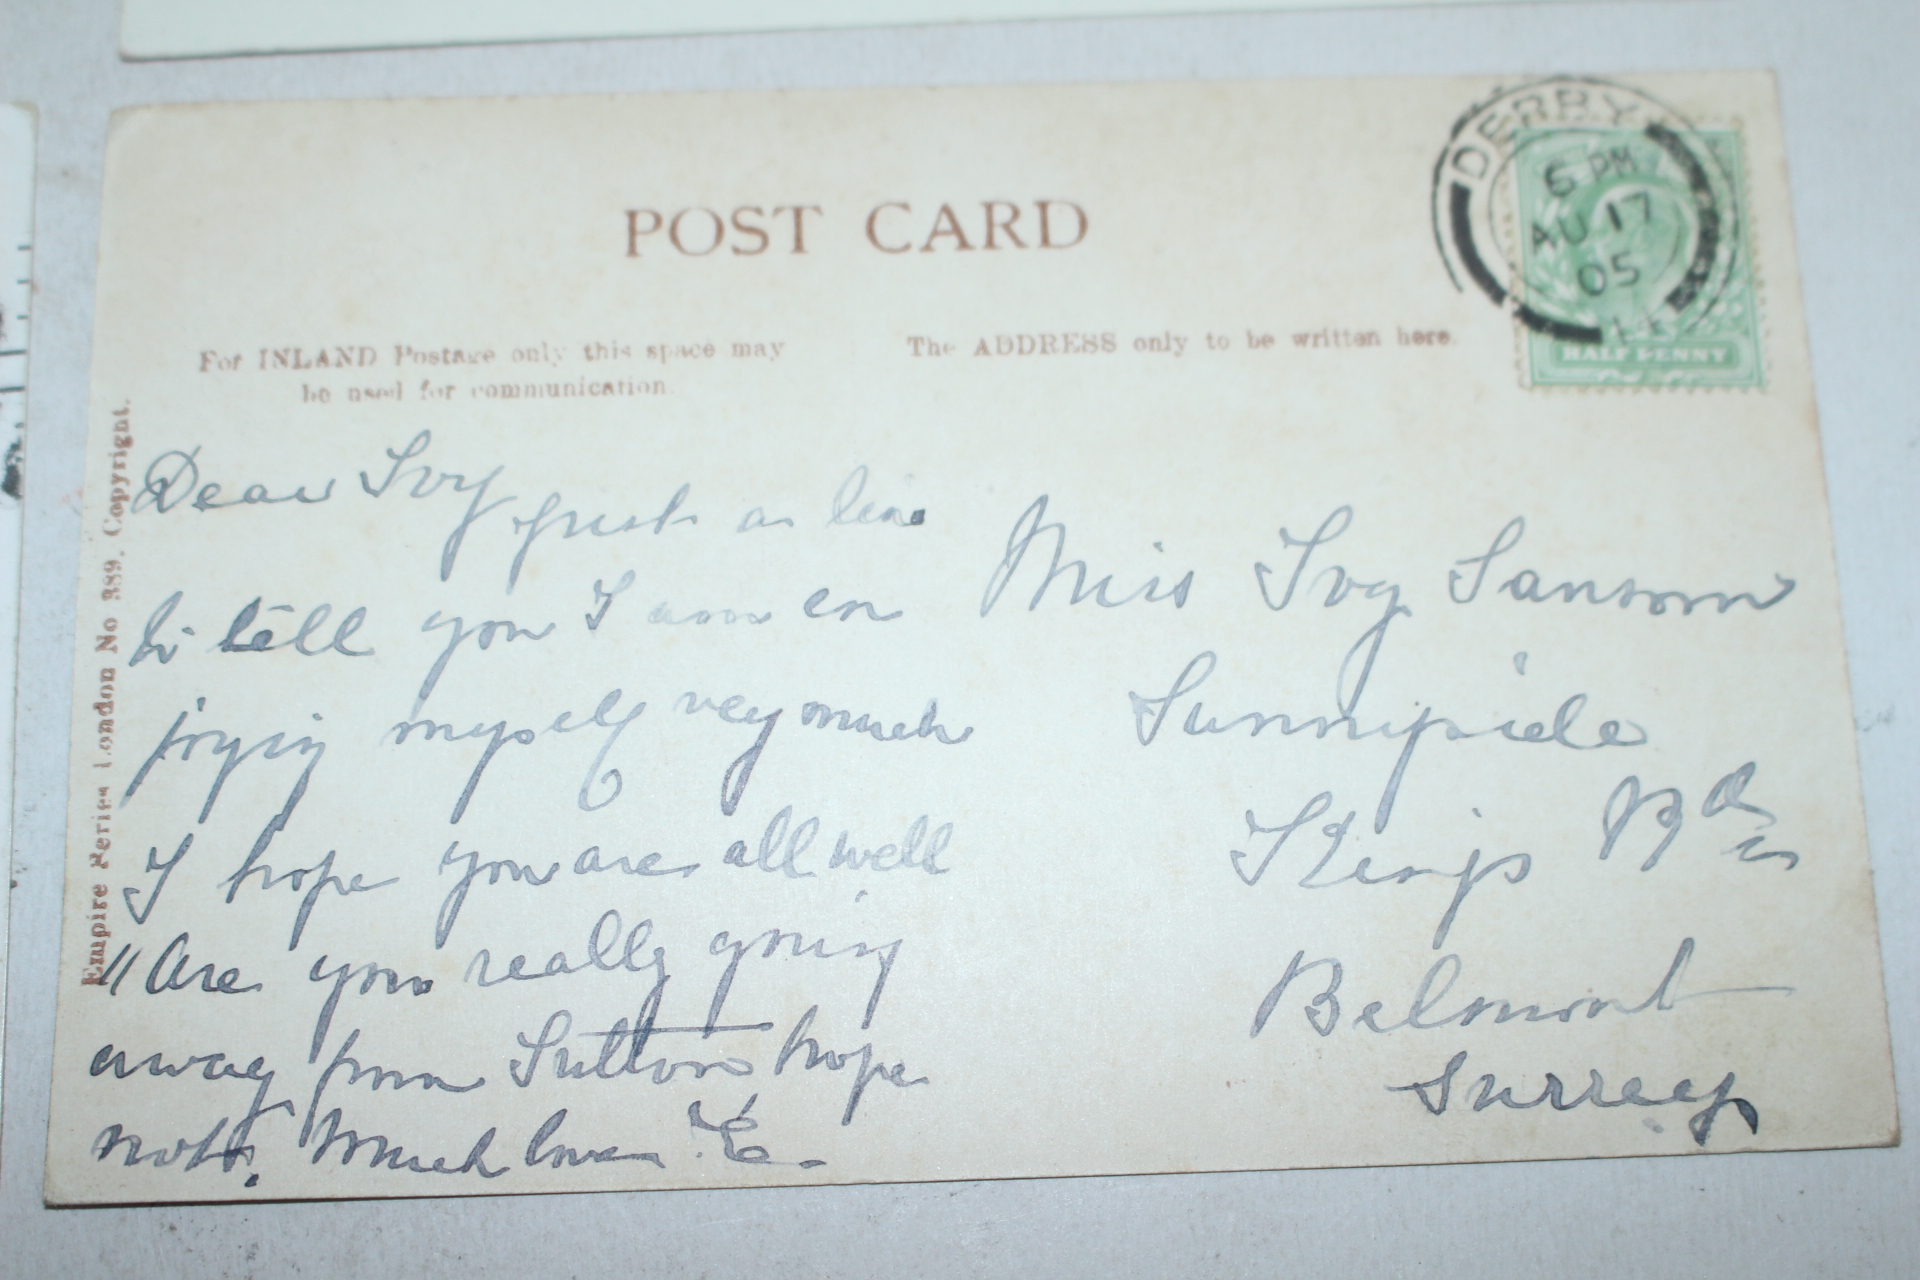 POST CARD
For INLAND Postage only this space may
be used for communication.
The ADDRESS only to be written here.
DERBY
6 PM
AU 17
05
HALF PENNY
Empire Series London No 389. Copyright.
Dear Ivy just a line
to tell you I am en
joying myself very much
I hope you are all well
"Are you really going
away from Sutton hope
not. Much love E.
Miss Ivy Sansom
Sunnyside
Kings Rd
Belmont
Surrey